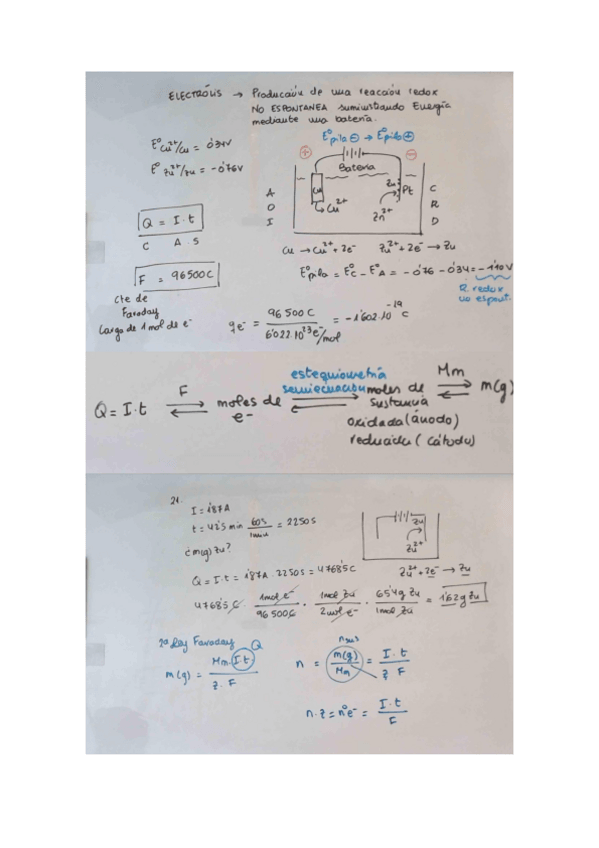 ELECTRÓLIS → Producción de una reacción redox
NO ESPONTANEA suministrando Energía
mediante una batería.
E°pila ⊖ → E°pila ⊕
E°Cu²⁺/Cu = 0'34V
E°Zu²⁺/Zu = -0'76V
⊕ ⊖
Batería
Cu
Cu²⁺
Zu
Pt
Zn²⁺
A
O
I
C
R
D
Q = I · t
C A · S
Cu → Cu²⁺ + 2e⁻ Zu²⁺ + 2e⁻ → Zu
E°pila = E°C - E°A = -0'76 - 0'34 = -1'10V
R. redox
no espont.
F = 96500C
Cte de
Faraday
Carga de 1 mol de e⁻
qe⁻ = 96 500 C / 6'022.10²³ e⁻/mol = -1'602.10⁻¹⁹ C
estequiometría
semiecuación
Q = I·t F moles de e⁻ moles de sustancia Mm m(g)
oxidada (ánodo)
reducida (cátodo)
21.
I = 1'87A
t = 42'5 min 60s/1min = 2250 s
¿m(g) Zu?
Zu
Zu²⁺
Q = I·t = 1'87A . 2250s = 4768'5C
Zu²⁺ + 2e⁻ → Zu
4768'5 C · 1mol e⁻/96 500C · 1mol Zu/2mol e⁻ · 65'4g Zu/1mol Zu = 1'62g Zu
2ª Ley Faraday Q
m(g) = Mm·I·t / z·F
n = m(g)/Mm = I·t / z·F
n·z = nºe⁻ = I·t / F